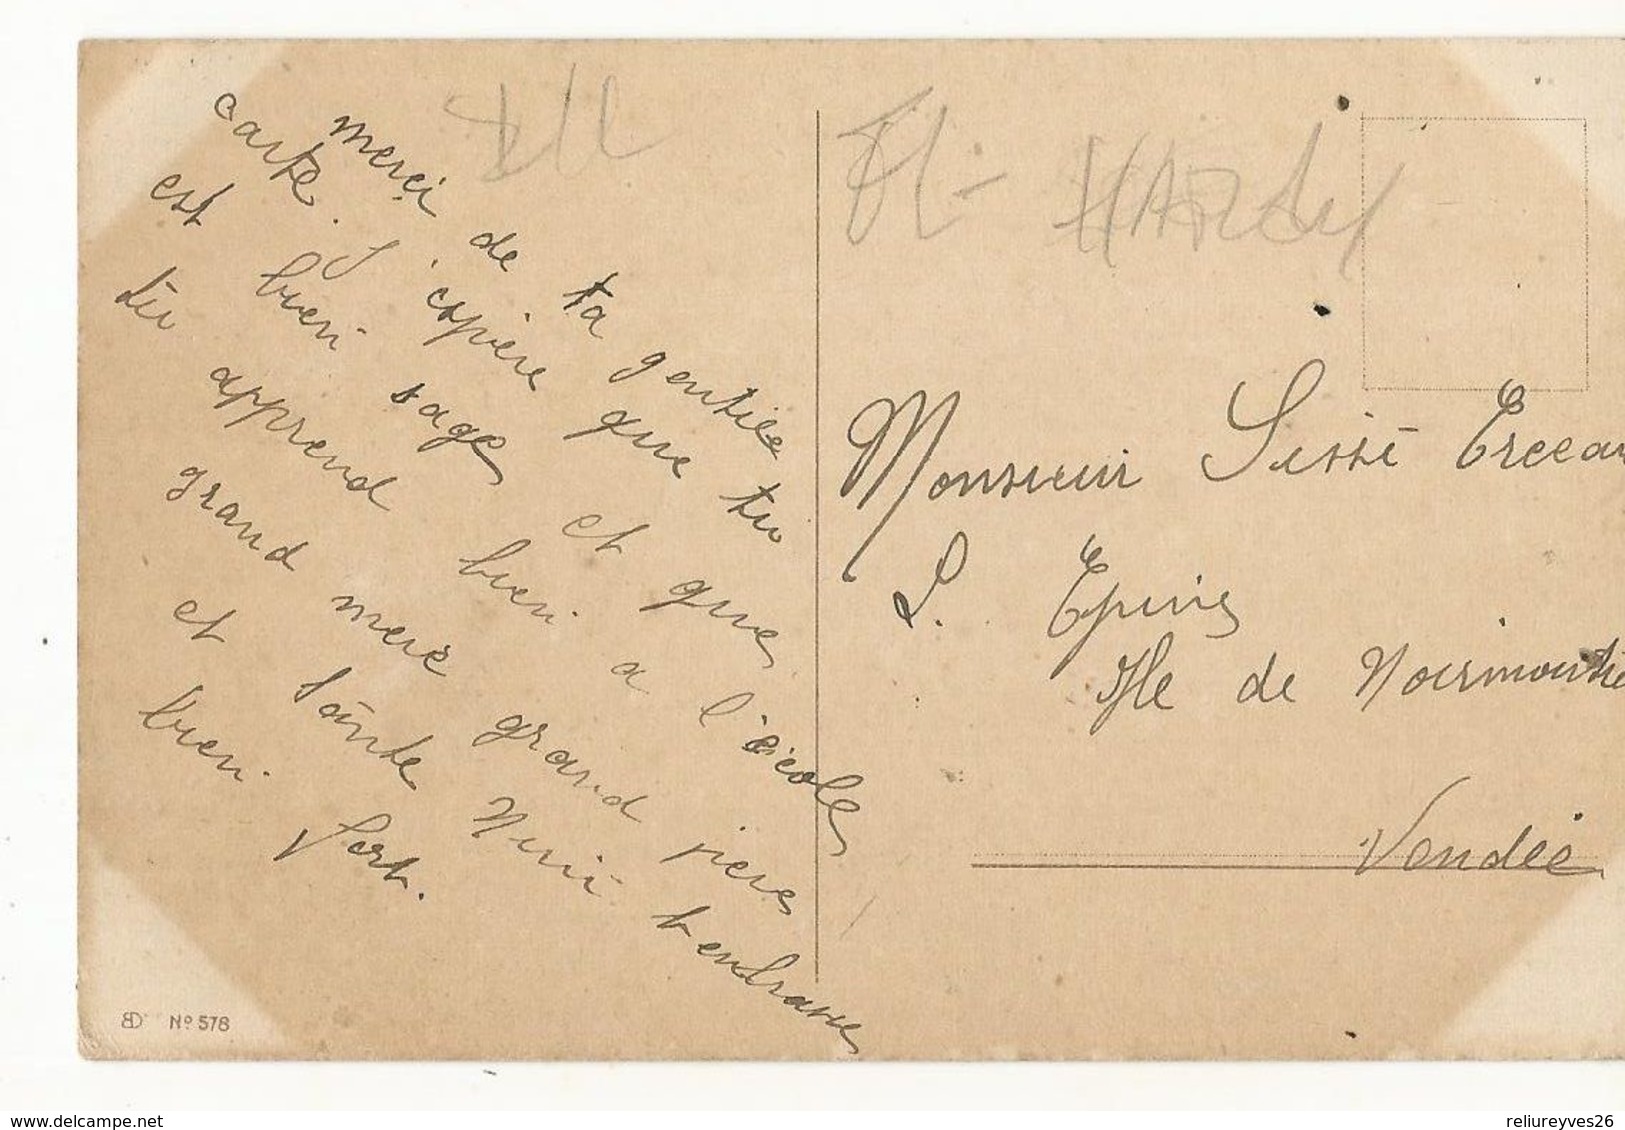 merci de ta gentille
carte. J'espère que tu
est bien sage et que
tu apprend bien a l'école
grand mere grand pere
et tante Nini t'embrasse
bien fort.
HARDY
Monsieur
L. Epine
Ile de Noirmoutie
Vendée
BD No 578
www.delcampe.net
reliureyves26